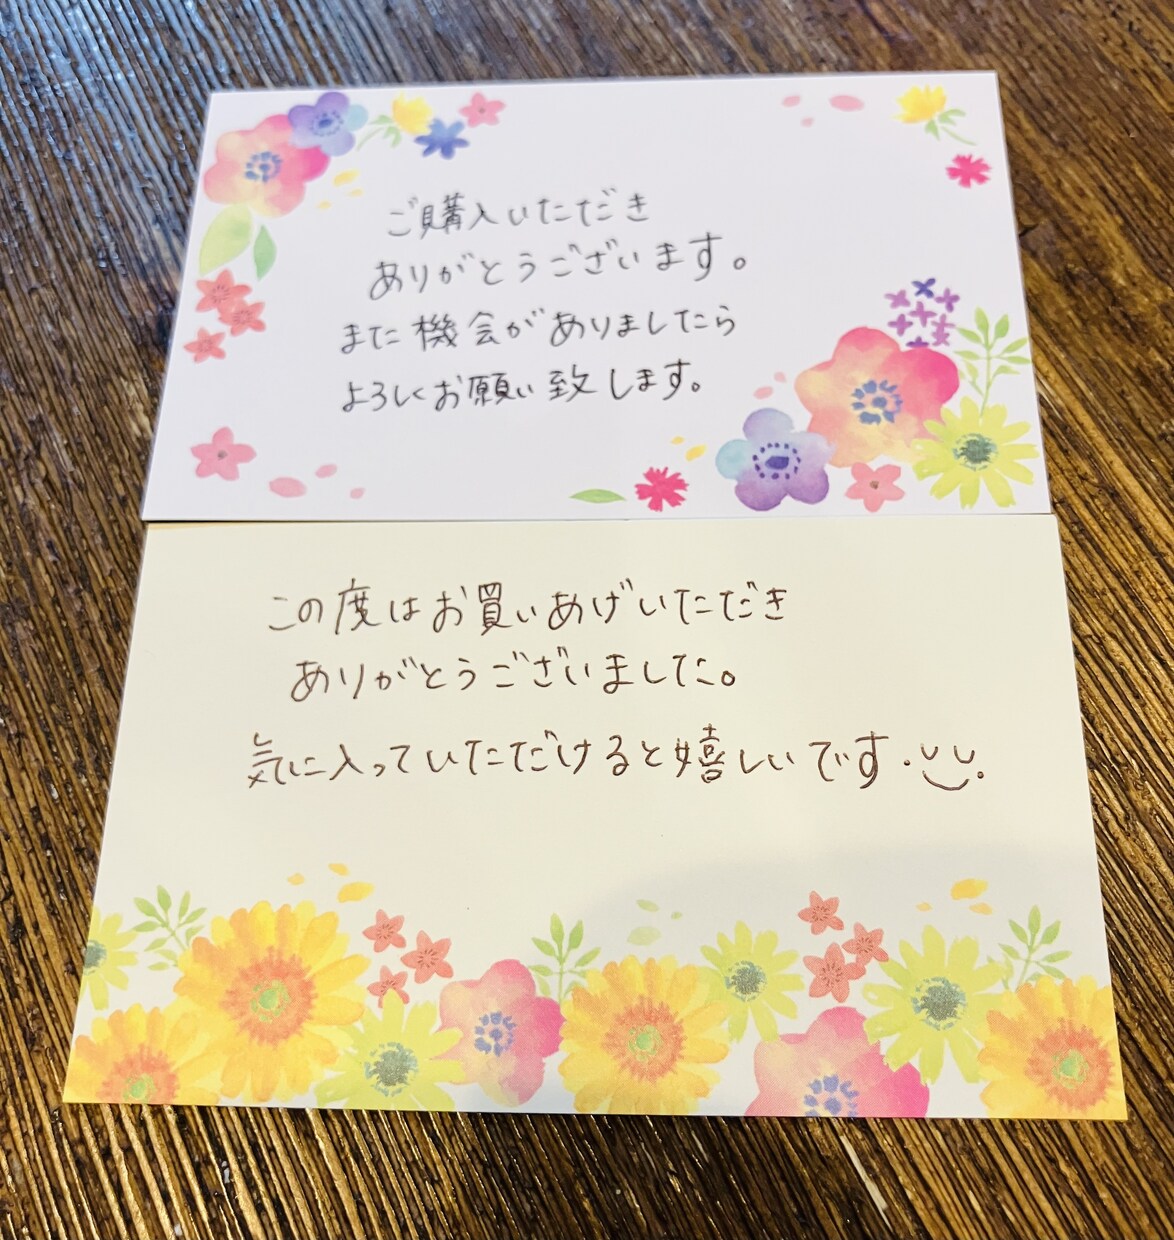 ご購入いただき
ありがとうございます。
また機会がありましたら
よろしくお願い致します。
この度はお買いあげいただき
ありがとうございました。
気に入っていただけると嬉しいです